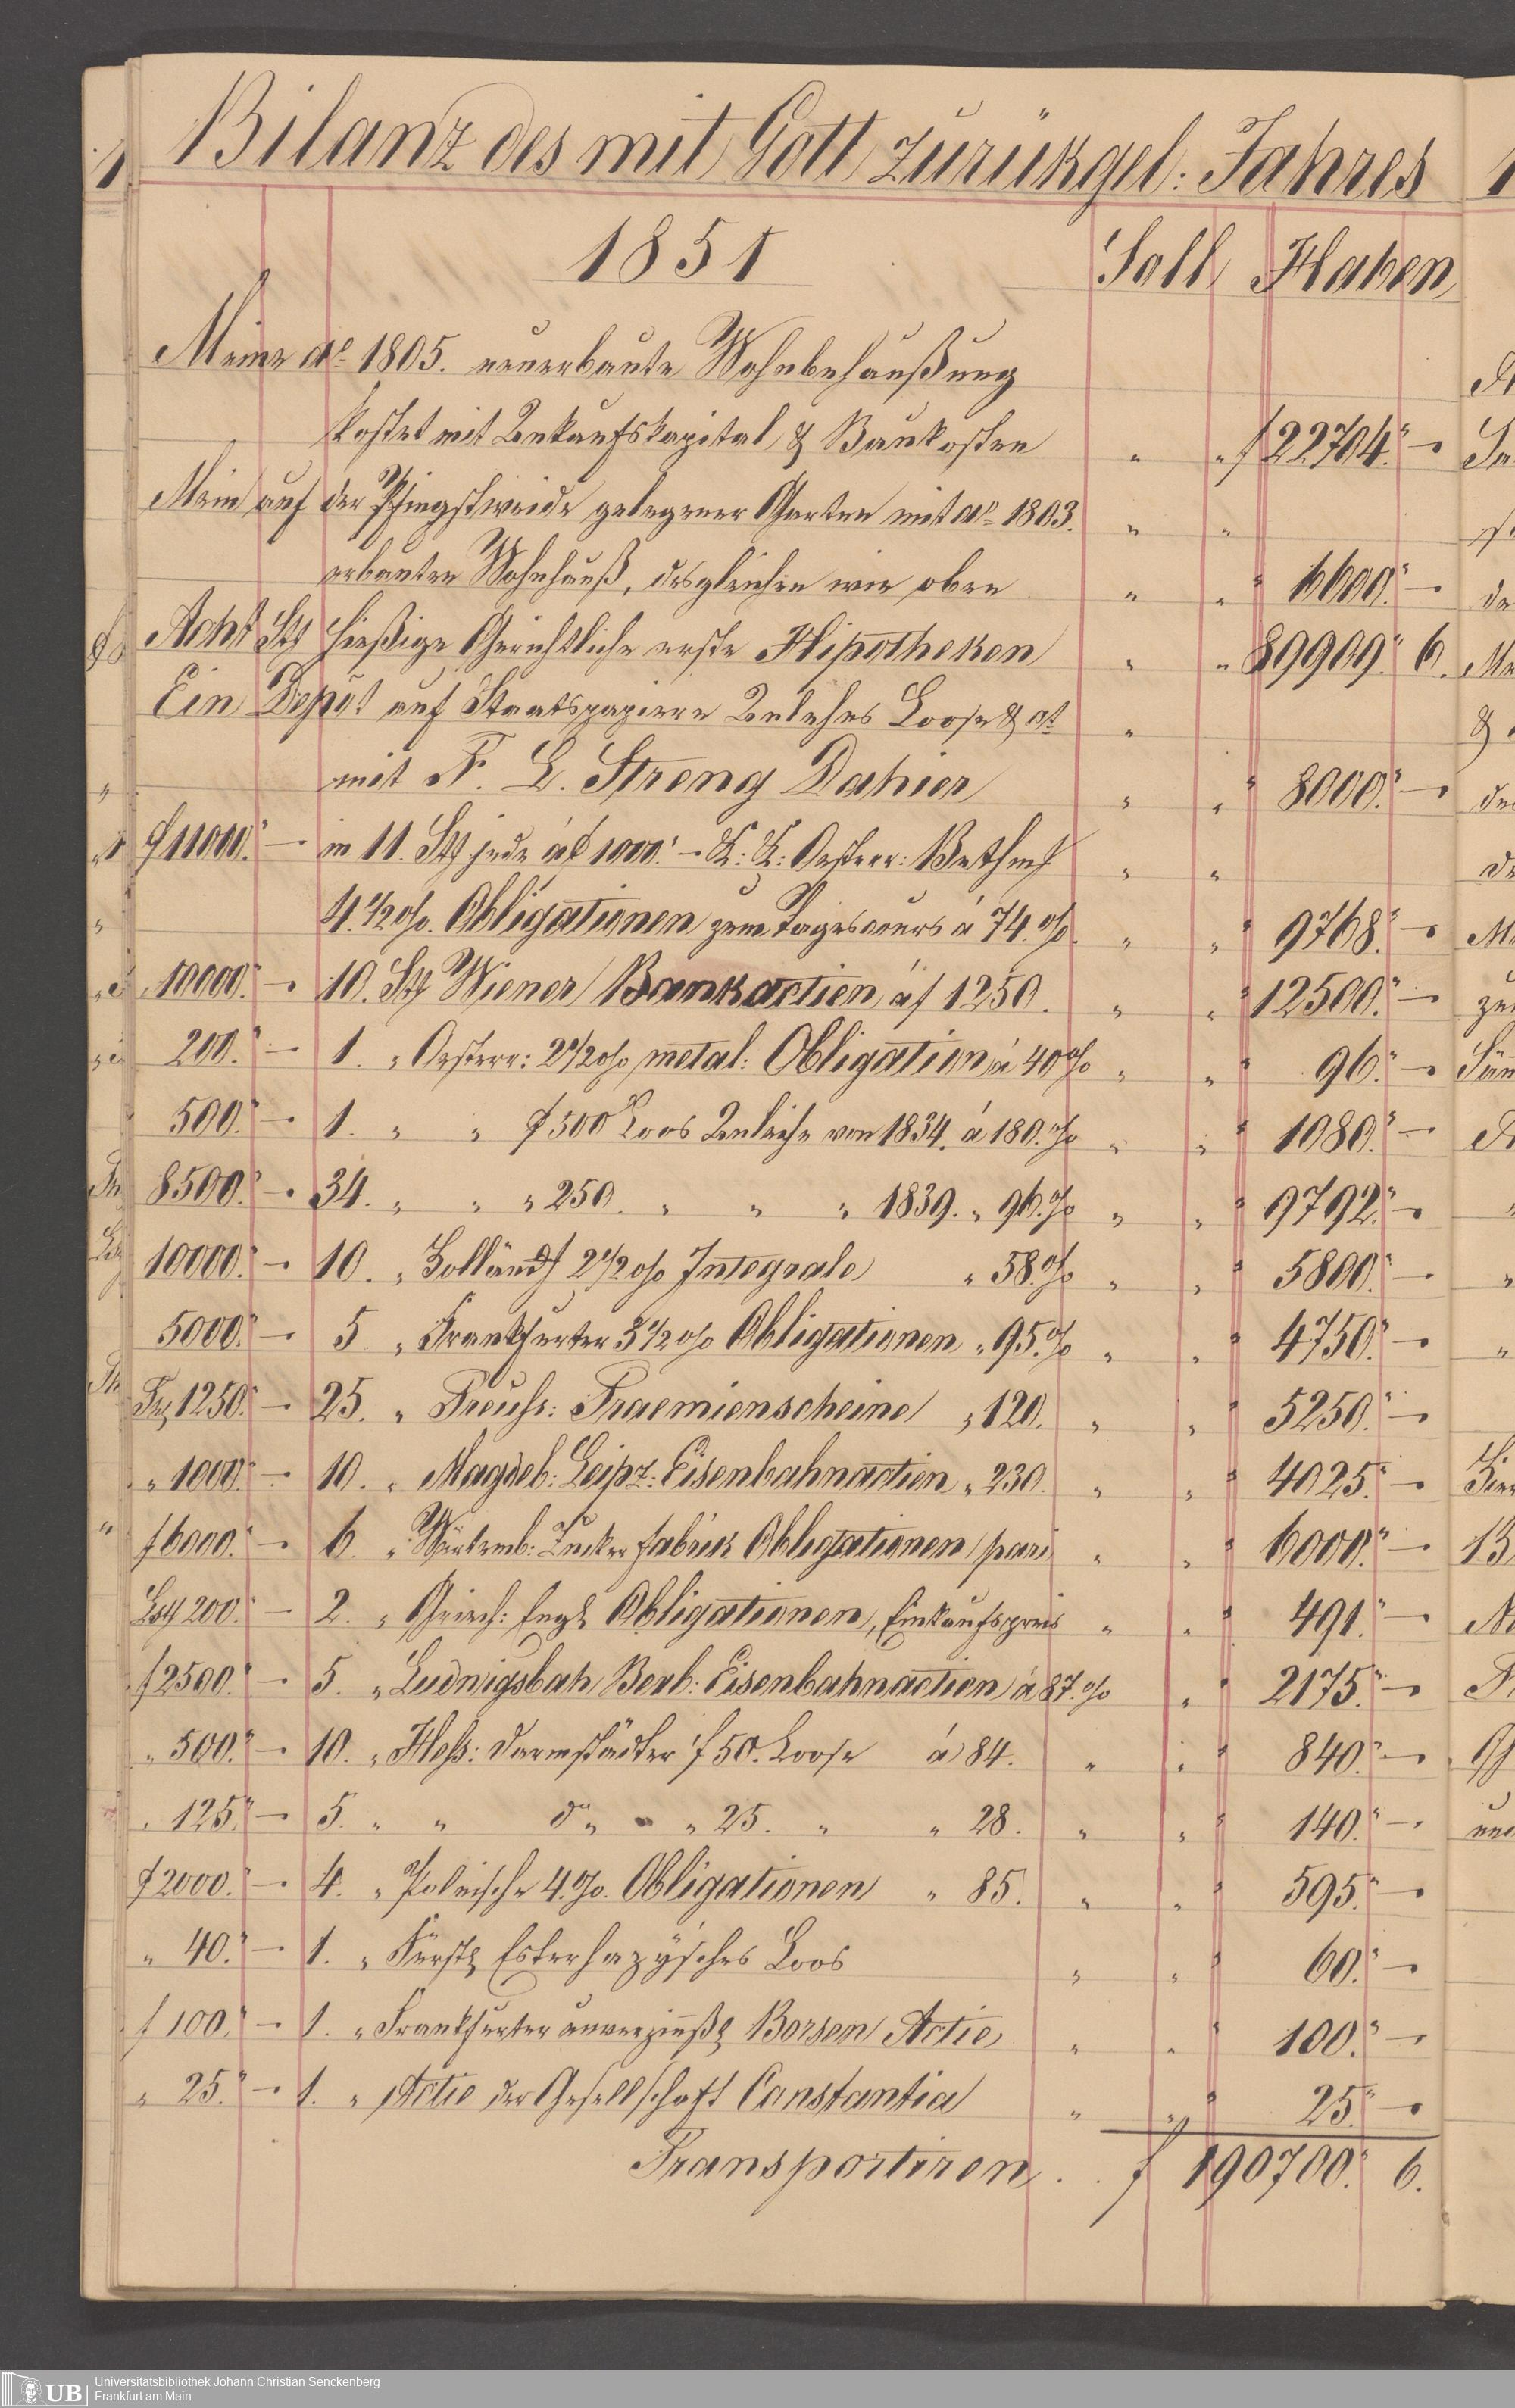 Bilanz des mit Gott zurükgel: Jahres
1851 Soll Haben
Meine ao 1805. neuerbaute Wohnbehaußung
kostet mit Ankaufskapital & Baukosten " " f 22704." –
Mein auf der Pfingstweide gelegener Garten mit ao 1803. " "
erbauten Wohnhauß, desgleichen wie oben " " " 6600." –
Acht Stk hießige Gerichtliche erste Hipotheken " " 89909." 6.
Ein Depot auf Staatspapiere Anlehns Loose & at "
mit F. L. Streng Dahier " " " 8000." –
f 11000." – in 11. Stk jede à f 1000." – K: K: Oesterr: Bethm " "
4.1/2 o/o. Obligationen zum Tagescours à 74. o/o. " " " 9768." –
10000." – 10. Stk Wiener Bankactien à f 1250. " " " 12500." –
200." – 1. " Oesterr: 2 1/2 o/o metal: Obligation à 40 o/o " " " 96." –
500." – 1. " " f 500 Loos Anleihe von 1834. à 180. o/o " " " 1080." –
8500." – 34. " " " 250. " " " 1839. " 96. o/o " " " 9792." –
10000." – 10. " Holländ 2 1/2 o/o Integrale " 58. o/o " " " 5800." –
5000." – 5 " Frankfurter 3 1/2 o/o Obligationen " 95. o/o " " " 4750." –
1250." – 25. " Preuss: Praemienscheine " 120. " " 5250." –
" 1000." – 10. " Magdeb: Leipz: Eisenbahnactien " 230. " " " 4025." –
f 6000." – 6. " Würtemb: Zucker fabrik Obligationen pari " " " 6000." –
200." – 2. " Griech: Engl Obligationen, Einkaufspreis " " " 491." –
f 2500." – 5. " Ludwigsbah Berb: Eisenbahnactien à 87. o/o " " 2175." –
" 500." – 10. " Hess: Darmstädter f 50. Loose à 84. " " " 840." –
" 125." – 5. " " do " " 25. " " 28. " " " 140." –
f 2000." – 4. " Polnische 4. o/o. Obligationen " 85. " " " 595." –
" 40." – 1. " Fürstl Esterhazÿsches Loos " " " 60." –
f 100." – 1. " Frankfurter unverzinßl Borsen Actie " " " 100." –
" 25." – 1. " Actie der Gesellschaft Constantia " " " 25." –
Transportiren . . f 190700." 6.
UB Universitätsbibliothek Johann Christian Senckenberg
Frankfurt am Main